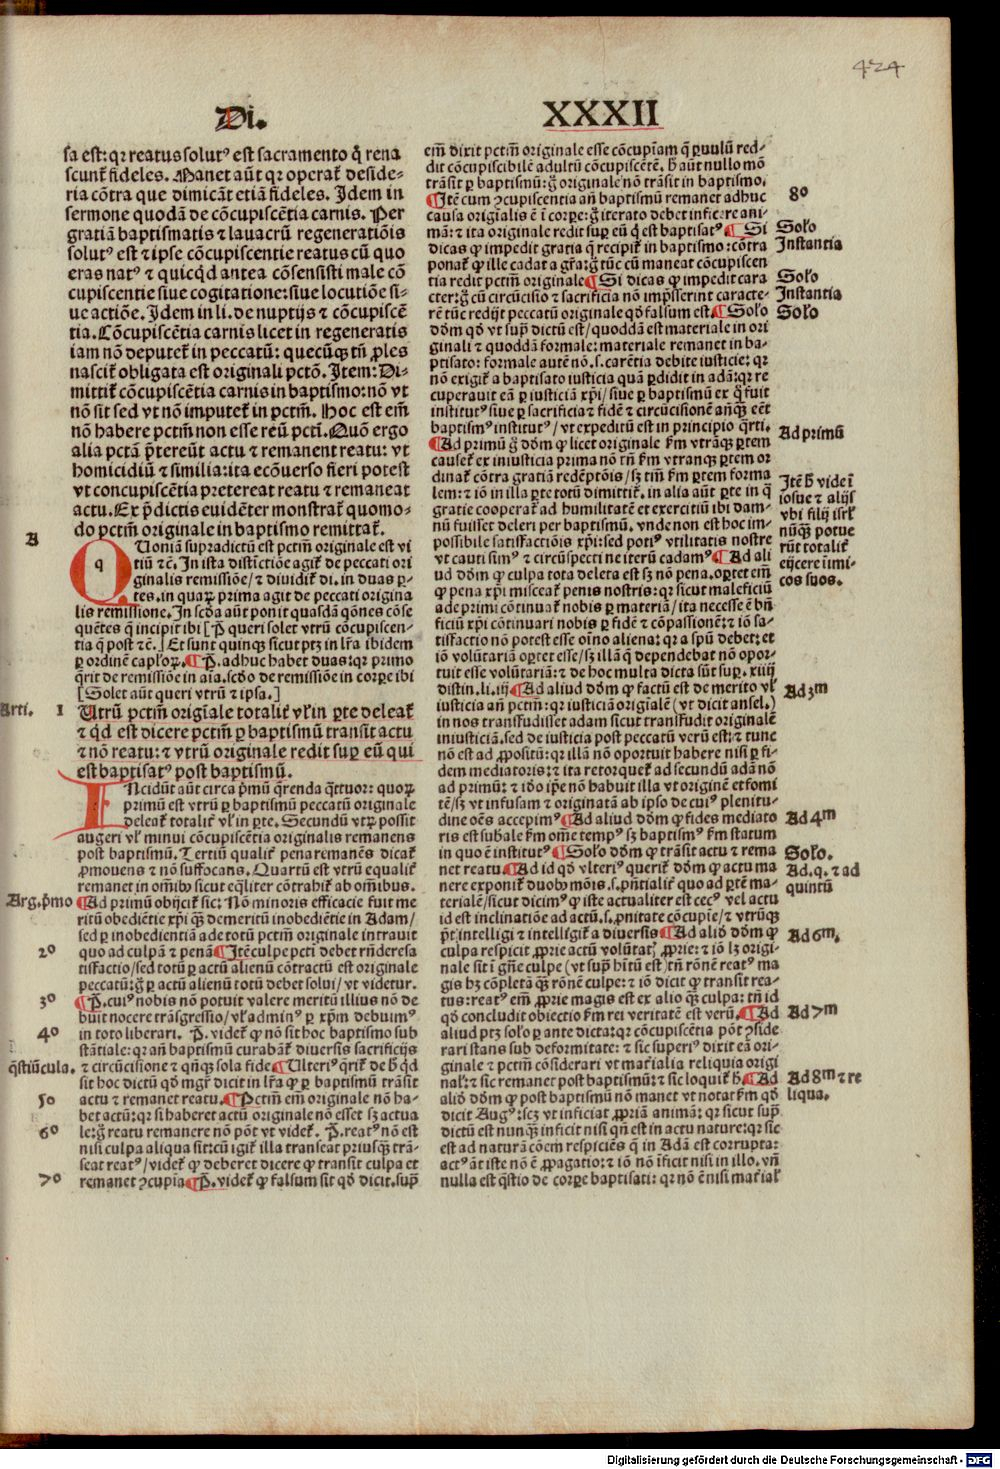 424
Di.
XXXII
sa est: qꝛ reatus solutꝰ est sacramento q̄ rena
scunt᷑ fideles. Manet aūt qꝛ operat᷑ deside⸗
ria cōtra que dimicāt etiā fideles. Idem in
sermone quodā de cōcupiscētia carnis. Per
gratiā baptismatis ⁊ lauacrū regeneratiōis
solutꝰ est ⁊ ipse cōcupiscentie reatus cū quo
eras natꝰ ⁊ quicq̇d antea cōsensisti male cō
cupiscentie siue cogitatione: siue locutiōe si⸗
ue actiōe. Idem in li. de nuptijs ⁊ cōcupiscē
tia. Cōcupiscētia carnis licet in regeneratis
iam nō deputet᷑ in peccatū: quecūqꝫ tn̄ ꝓles
nascit᷑ obligata est originali pctō. Item: Di⸗
mittit᷑ cōcupiscētia carnis in baptismo: nō vt
nō sit sed vt nō imputet᷑ in pctm̄. Hoc est em̄
nō habere pctm̄ non esse reū pcti. Quō ergo
alia pctā p̄tereūt actu ⁊ remanent reatu: vt
homicidiū ⁊ similia: ita ecōuerso fieri potest
vt concupiscētia pretereat reatu ⁊ remaneat
actu. Ex p̄dictis euidēter monstrat᷑ quomo⸗
do pctm̄ originale in baptismo remittat᷑.
A
q
QUoniā supꝛadictū est pctm̄ originale est vi
tiū ⁊c̄. In ista distīctiōe agit᷑ de peccati ori
ginalis remissiōe/ ⁊ diuidit᷑ di. in duas ꝑ⸗
tes. in quaꝝ prima agit de peccati origina
lis remissione. In scd̄a aūt ponit quasdā qōnes cōse
quētes q̄ incipit ibi [P̄ queri solet vtrū cōcupiscen⸗
tia q̄ post ⁊c̄.] Et sunt quinqꝫ sicut ptꝫ in lr̄a ibidem
ꝑ ordinē capl'oꝝ. ¶ P̄. adhuc habet duas: qꝛ primo
q̄rit de remissiōe in aīa. scd̄o de remissiōe in corꝑe ibi
[Solet aūt queri vtrū ⁊ ipsa.]
Arti. 1
Utrū pctm̄ origīale totalit᷑ vl' in ꝑte deleat᷑
⁊ q̇d est dicere pctm̄ ꝑ baptismū transit actu
⁊ nō reatu: ⁊ vtrū originale redit suꝑ eū qui
est baptisatꝰ post baptismū.
INcidūt aūt circa p̄mū q̄renda q̄ttuor: quoꝝ
primū est vtrū ꝑ baptismū peccatū originale
deleat᷑ totalit᷑ vl' in ꝑte. Secundū vtꝝ possit
augeri vl' minui cōcupiscētia originalis remanens
post baptismū. Tertiū qualit᷑ pena remanēs dicat᷑
ꝓmouens ⁊ nō suffocans. Quartū est vtrū equalit᷑
remanet in om̄ibꝫ sicut eq̄liter cōtrahit᷑ ab om̄ibus.
Arg. p̄mo
¶ Ad primū obijcit᷑ sic: Nō minoris efficacie fuit me
ritū obediētie xp̄i qꝫ demeritū inobediētie in Adam/
sed ꝑ inobedientiā ade totū pctm̄ originale intrauit
2o
quo ad culpā ⁊ penā ¶ Itē culpe pcti debet rn̄dere sa
tisfactio/ sed totū ꝑ actū alienū cōtractū est originale
peccatū: g̊ ꝑ actū alienū totū debet solui/ vt videtur.
3o
¶ P̄. cuiꝰ nobis nō potuit valere meritū illius nō de
buit nocere trāsgressio/ vl' adminꝰ ꝑ xp̄m debuimꝰ
4o
in toto liberari. P̄. videt᷑ ꝙ nō sit hoc baptismo sub
stātiale: qꝛ an̄ baptismū curabāt᷑ diuersis sacrificijs
q̄stiūcula.
⁊ circūcisiōne ⁊ qn̄qꝫ sola fide ¶ Ulteriꝰ q̄rit᷑ de h̄ q̇d
sit hoc dictū qd̄ mgr̄ dicit in lr̄a ꝙ ꝑ baptismū trāsit
5o
actu ⁊ remanet reatu. ¶ Pctm̄ em̄ originale nō ha⸗
bet actū: qꝛ si haberet actū originale nō esset sꝫ actua
6o
le: g̊ reatu remanere nō pōt vt videt᷑. P̄. reatꝰ nō est
nisi culpa aliqua sit: cū igit᷑ illa transeat priusqꝫ trā⸗
seat reatꝰ/ videt᷑ ꝙ deberet dicere ꝙ transit culpa et
7o
remanet ꝯcupīa ¶ P̄. videt᷑ ꝙ falsum sit qd̄ dicit. sup̄
em̄ dixit pctm̄ originale esse cōcupīam q̄ ꝑuulū red⸗
dit cōcupiscibilē adultū cōcupiscētē. h̄ aūt nullo mō
trāsit ꝑ baptismū: g̊ originale nō trāsit in baptismo.
8o
¶ Itē cum ꝯcupiscētia an̄ baptismū remanet adhuc
causa origīalis ē ī corꝑe: g̊ iterato debet inficere ani⸗
mā: ⁊ ita originale redit suꝑ eū q̇ est baptisatꝰ. ¶ Si
Solo
Instantia
dicas ꝙ impedit gratia q̄ recipit᷑ in baptismo: cōtra
ponat᷑ ꝙ ille cadat a gr̄a: g̊ tūc cū maneat cōcupiscen
tia redit pctm̄ originale ¶ Si dicas ꝙ impedit cara
Solo
Instantia
cter: g̊ cū circūcisio ⁊ sacrificia nō imp̄sserint caracte⸗
rē tūc redijt peccatū originale qd̄ falsum est. ¶ Solo
Solo
dōm qd̄ vt sup̄ dictū est/ quoddā est materiale in ori
ginali ⁊ quoddā formale: materiale remanet in ba⸗
ptisato: formale autē nō. s. carētia debite iusticie: qꝛ
nō exigit᷑ a baptisato iusticia quā ꝑdidit in adā: qꝛ re
cuperauit eā ꝑ iusticiā xp̄i/ siue ꝑ baptismū ex q̊ fuit
institutꝰ siue ꝑ sacrificia ⁊ fidē ⁊ circūcisionē an̄qꝫ eēt
baptismꝰ institutꝰ/ vt expeditū est in principio q̄rti.
Ad primū
¶ Ad primū g̊ dōm ꝙ licet originale fm̄ vtrāqꝫ ꝑtem
causet᷑ ex iniusticia prima nō tn̄ fm̄ vtranqꝫ ꝑtem or
dinat᷑ cōtra gratiā redēptōis/ sꝫ tm̄ fm̄ ꝑtem forma
lem: ⁊ iō in illa ꝑte totū dimittit᷑. in alia aūt ꝑte in q̄
gratie cooperat᷑ ad humilitatē ⁊ exercitiū ibi dam⸗
nū fuisset deleri per baptismū. vnde non est hoc im⸗
possibile satisfactiōis xp̄i: sed potiꝰ vtilitatis nostre
vt cauti simꝰ ⁊ circūspecti ne iterū cadamꝰ ¶ Ad ali
Itē h̄ vide ī
iosue ⁊ alijs
vbi filij isrl'
nūqꝫ potue
rūt totalit᷑
eijcere inimi⸗
cos suos.
ud dōm ꝙ culpa tota deleta est sꝫ non pena. oꝑtet em̄
ꝙ pena xp̄i misceat᷑ penis nostris: qꝛ sicut maleficiū
ade primi cōtinuat᷑ nobis ꝑ materiā/ ita necesse ē bn̄
ficiū xp̄i cōtinuari nobis ꝑ fidē ⁊ cōpassionē: ⁊ iō sa⸗
tisfactio nō potest esse oīno aliena: qꝛ a spū debet: et
iō volūtariā oꝑtet esse/ sꝫ illā q̄ dependebat nō opor⸗
tuit esse volūtariā: ⁊ de hoc multa dicta sūt suꝑ. xiiij
distin. li. iij ¶ Ad aliud dōm ꝙ factū est de merito vl'
Ad 3m
iusticia an̄ pctm̄: qꝛ iusticiā origialē (vt dicit ansel.)
in nos transfudisset adam sicut transfudit originalē
iniusticiā. sed de iusticia post peccatū verū est: ⁊ tunc
nō est ad ꝓpositū: qꝛ illā nō oportuit habere nisi ꝑ fi⸗
dem mediatoris: ⁊ ita retorquet᷑ ad secundū adā nō
ad primū: ⁊ ideo ip̄e nō habuit illa vt originē et fomi
tē/ sꝫ vt infusam ⁊ originatā ab ipso de cuiꝰ plenitu⸗
dine oēs accepimꝰ ¶ Ad aliud dōm ꝙ fides mediato
Ad 4m
ris est subāle fm̄ om̄e tempꝰ sꝫ baptismꝰ fm̄ statum
in quo ē institutꝰ ¶ Solo dōm ꝙ trāsit actu ⁊ rema
Solo.
net reatu. ¶ Ad id qd̄ vlteriꝰ querit᷑ dōm ꝙ actu ma
Ad. q. ⁊ ad
quintū
nere exponit᷑ duobꝫ mōis. s. pn̄tialit᷑ quo ad ꝑtē ma⸗
terialē/ sicut dicimꝰ ꝙ iste actualiter est cecꝰ vel actu
id est inclinatiōe ad actū. s. pnitate cōcupīe/ ⁊ vtrūqꝫ
p̄t intelligi ⁊ intelligit᷑ a diuersis ¶ Ad aliō dōm ꝙ
Ad 6m.
culpa respicit ꝓprie actū volūtatꝭ ꝓprie: ⁊ iō lꝫ origi⸗
nale sit ī gn̄e culpe (vt sup̄ hītū est) tn̄ rōnē reatꝰ ma
gis hꝫ cōpletā qꝫ rōnē culpe: ⁊ iō dicit ꝙ transit rea⸗
tus: reatꝰ em̄ ꝓprie magis est ex alio qꝫ culpa: tn̄ id
qd̄ concludit obiectio fm̄ rei veritatē est verū. ¶ Ad
Ad 7m
aliud ptꝫ solo ꝑ ante dicta: qꝛ cōcupiscētia pōt ꝯside
rari stans sub deformitate: ⁊ sic superiꝰ dixit eā ori⸗
ginale ⁊ pctm̄ cōsiderari vt mat'ialia reliquia origi
nal': ⁊ sic remanet post baptismū: ⁊ sic loquit᷑ h̄. ¶ Ad
Ad 8m ⁊ re
liqua.
aliō dōm ꝙ post baptismū nō manet vt notat᷑ fm̄ qd̄
dicit Augꝰ: scꝫ vt inficiat ꝓpriā animā: qꝛ sicut sup̄
dictū est nunqꝫ inficit nisi qn̄ est in actu nature: qꝛ sic
est ad naturā cōem respiciēs q̄ in Adā est corrupta:
actꝰ āt iste nō ē ꝓpagatio: ⁊ iō nō īficit nisi in illo. vn̄
nulla est q̄stio de corꝑe baptisati: qꝛ nō ē nisi mat'ial'
Digitalisierung gefördert durch die Deutsche Forschungsgemeinschaft - DFG